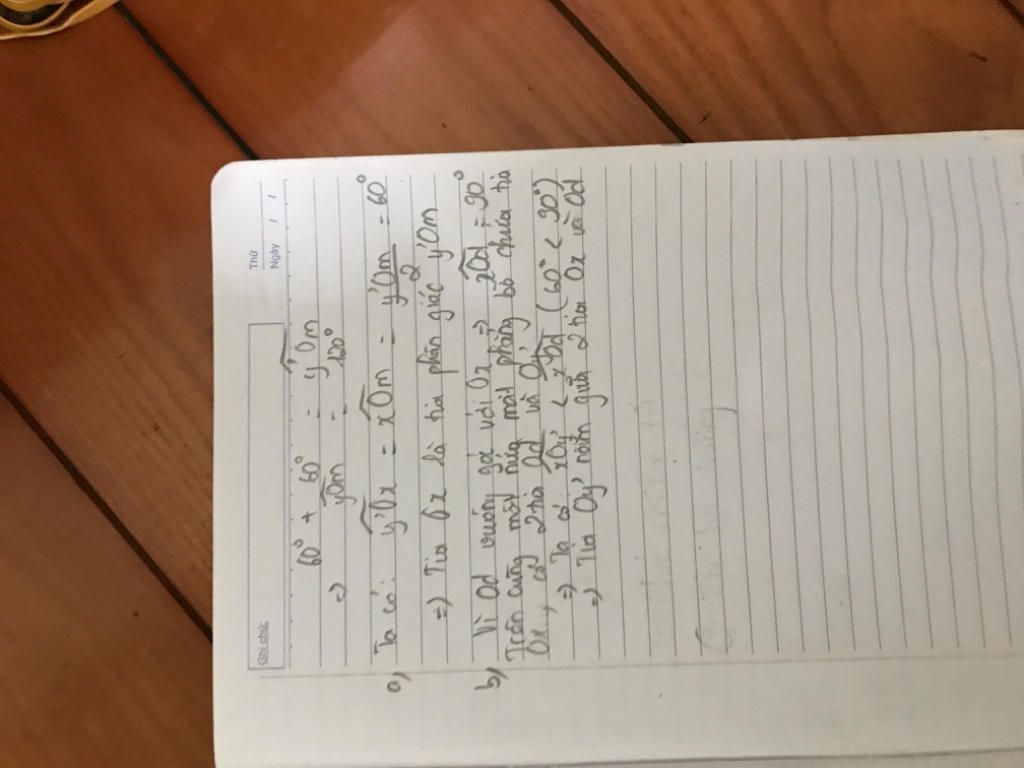 Ghi chú:
Thứ
Ngày / /
60° + 60° = y'Om
=> y'Om = 120°
a, Ta có: y'Ox = xOm = y'Om / 2 = 60°
=> Tia Ox là tia phân giác y'Om
b, Vì Od vuông gó với Ox => xOd = 90°
Trên cùng một nửa mặt phẳng bờ chứa tia
Ox, có 2 tia Od và Oy',
=> Ta có: xOy' < xOd (60° < 90°)
=> Tia Oy' nằm giữa 2 tia Ox và Od